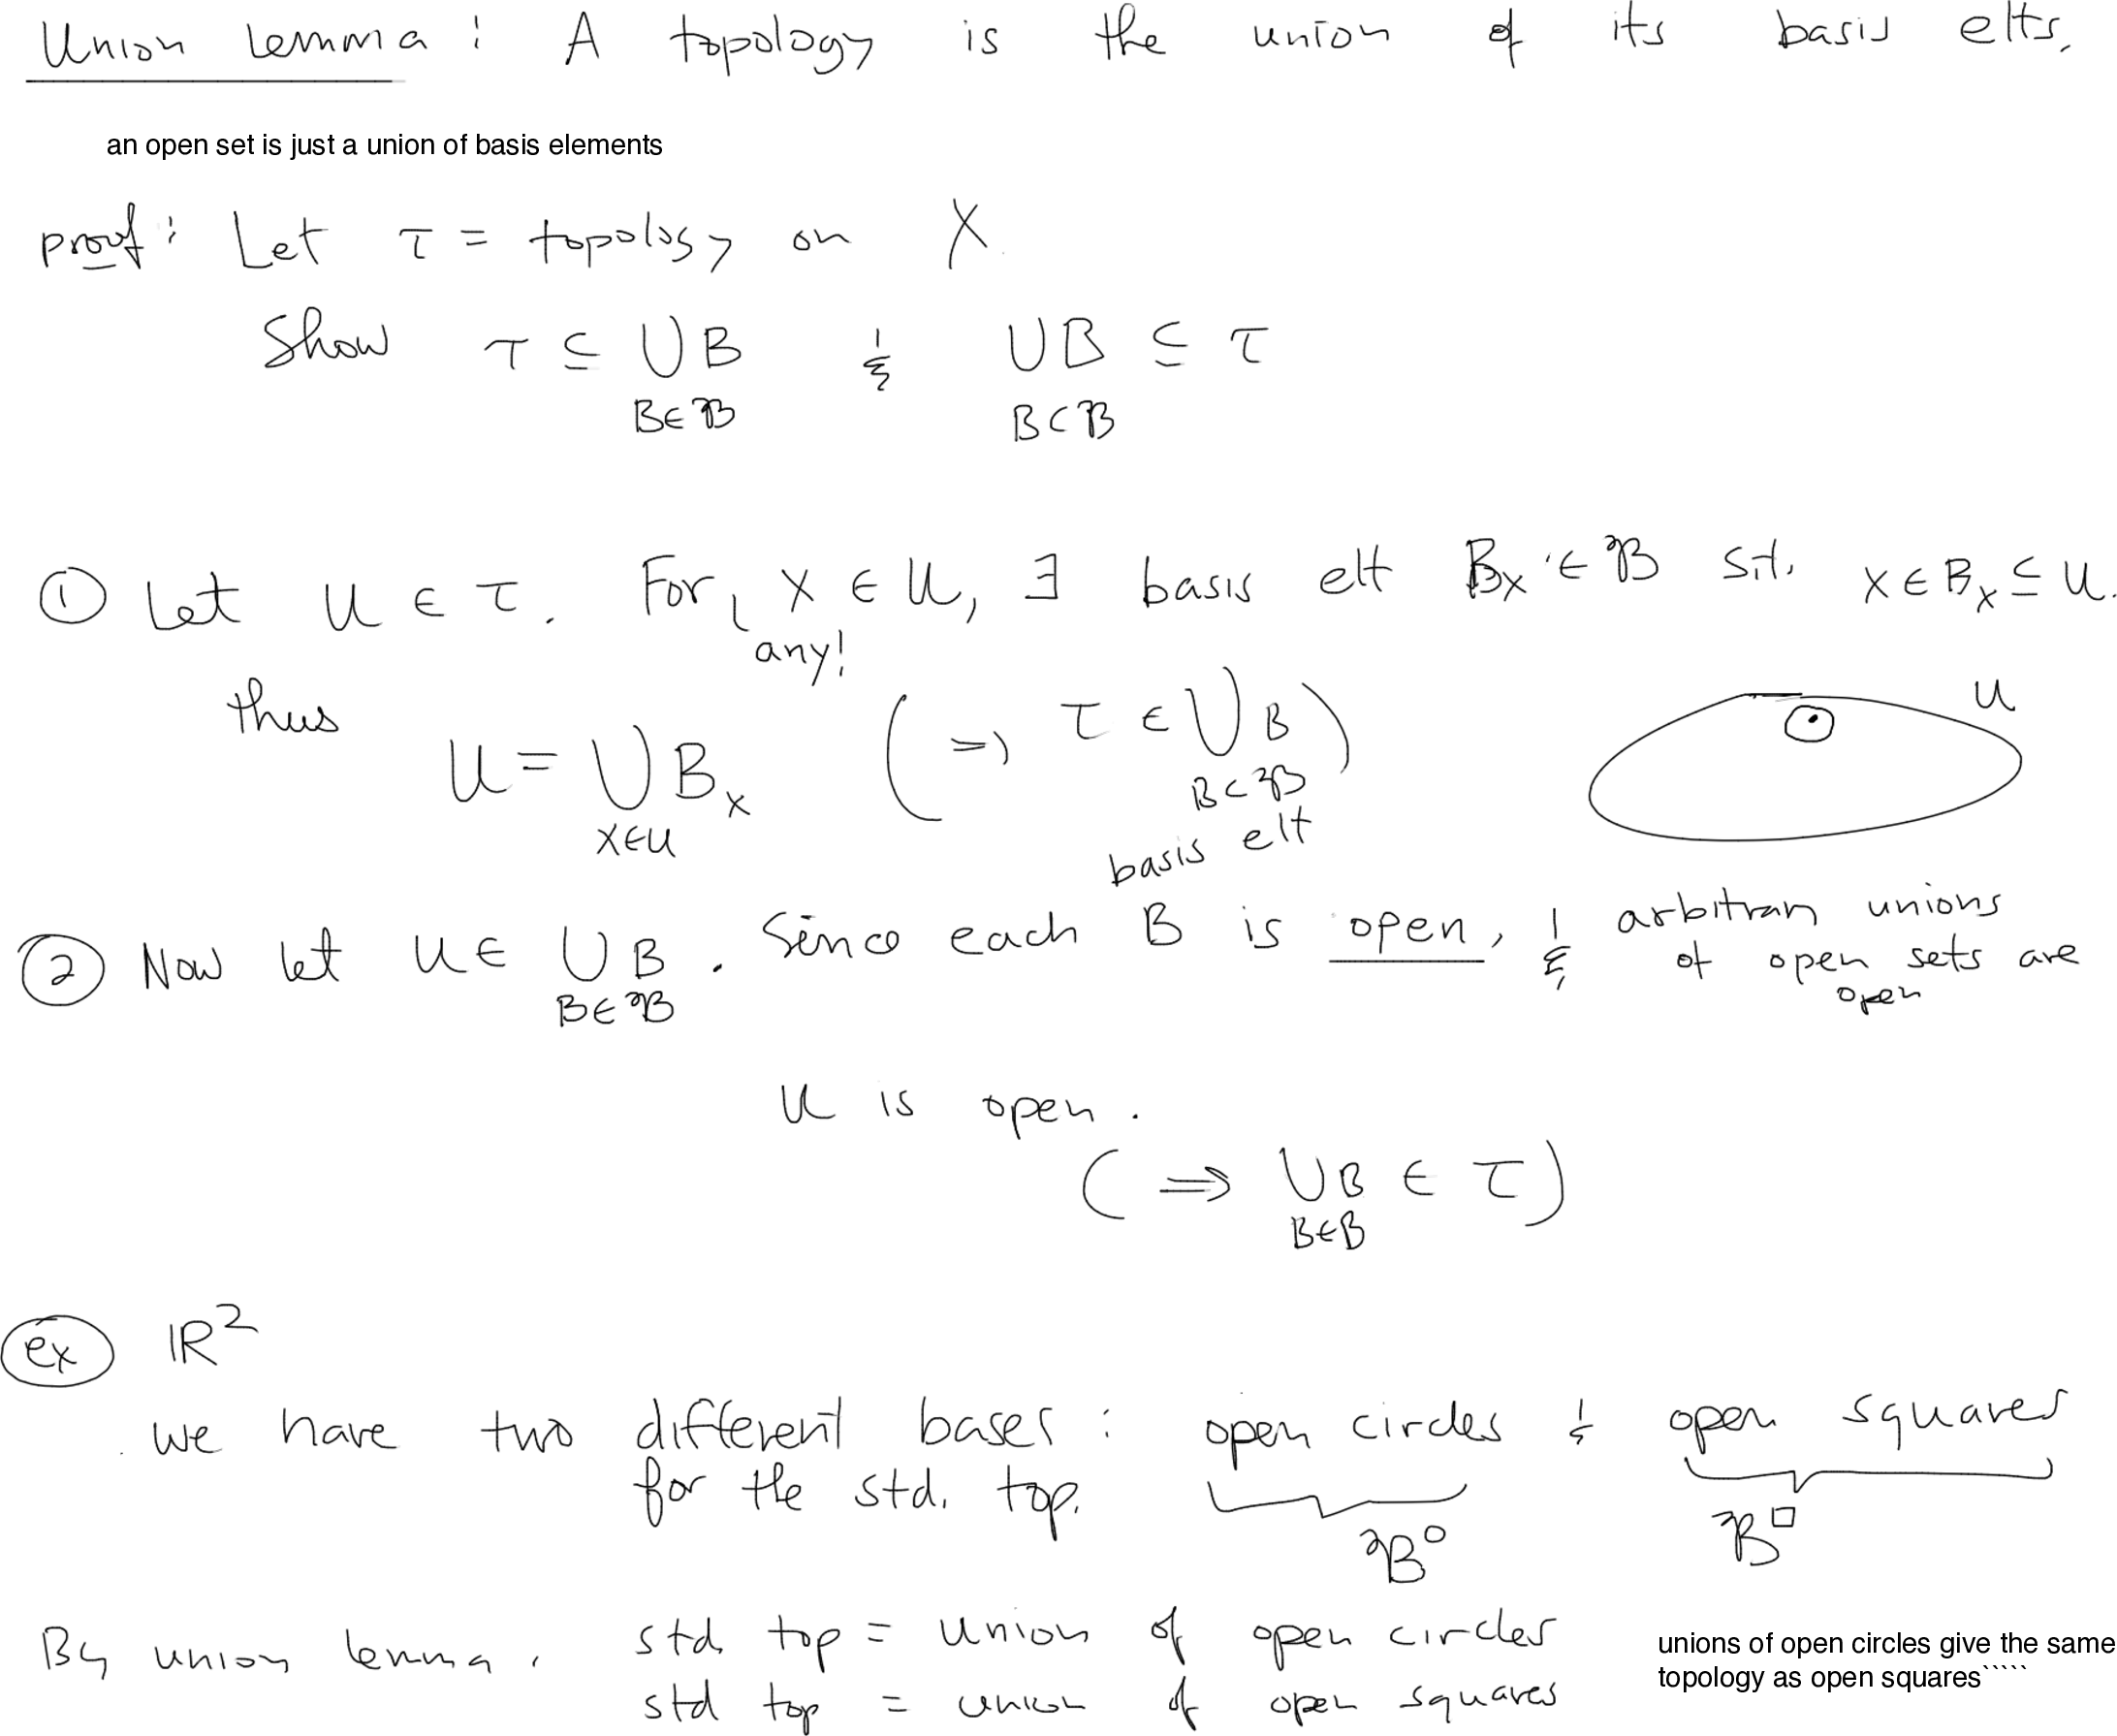 Union Lemma: A topology is the union of its basis elts.
an open set is just a union of basis elements
proof: Let τ = topology on X.
Show τ ⊆ ∪B & ∪B ⊆ τ
B∈ℬ B⊂ℬ
① Let U ∈ τ. For X ∈ U, ∃ basis elt Bx ∈ ℬ s.t. x ∈ Bx ⊆ U.
any!
thus U = ∪Bx ( ⇒ τ ∈ ∪B ) U
x∈U B⊂ℬ
basis elt
② Now let U ∈ ∪B. Since each B is open, & arbitrary unions
B∈ℬ of open sets are
open
U is open.
( ⇒ ∪B ∈ τ )
B∈B
ex ℝ²
we have two different bases: open circles & open squares
for the std. top.
ℬ° ℬ□
By union lemma, std top = union of open circles
std top = union of open squares
unions of open circles give the same
topology as open squares`````